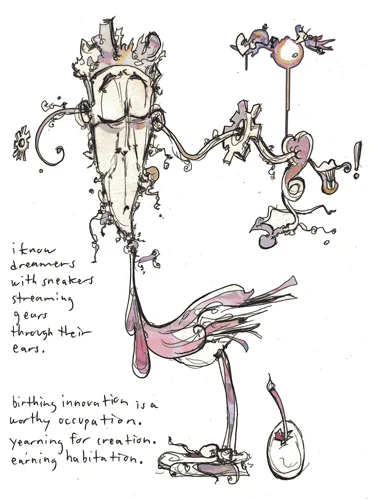 i know
dreamers
with sneakers
streaming
gears
through their
ears.
birthing innovation is a
worthy occupation.
yearning for creation.
earning habitation.
!